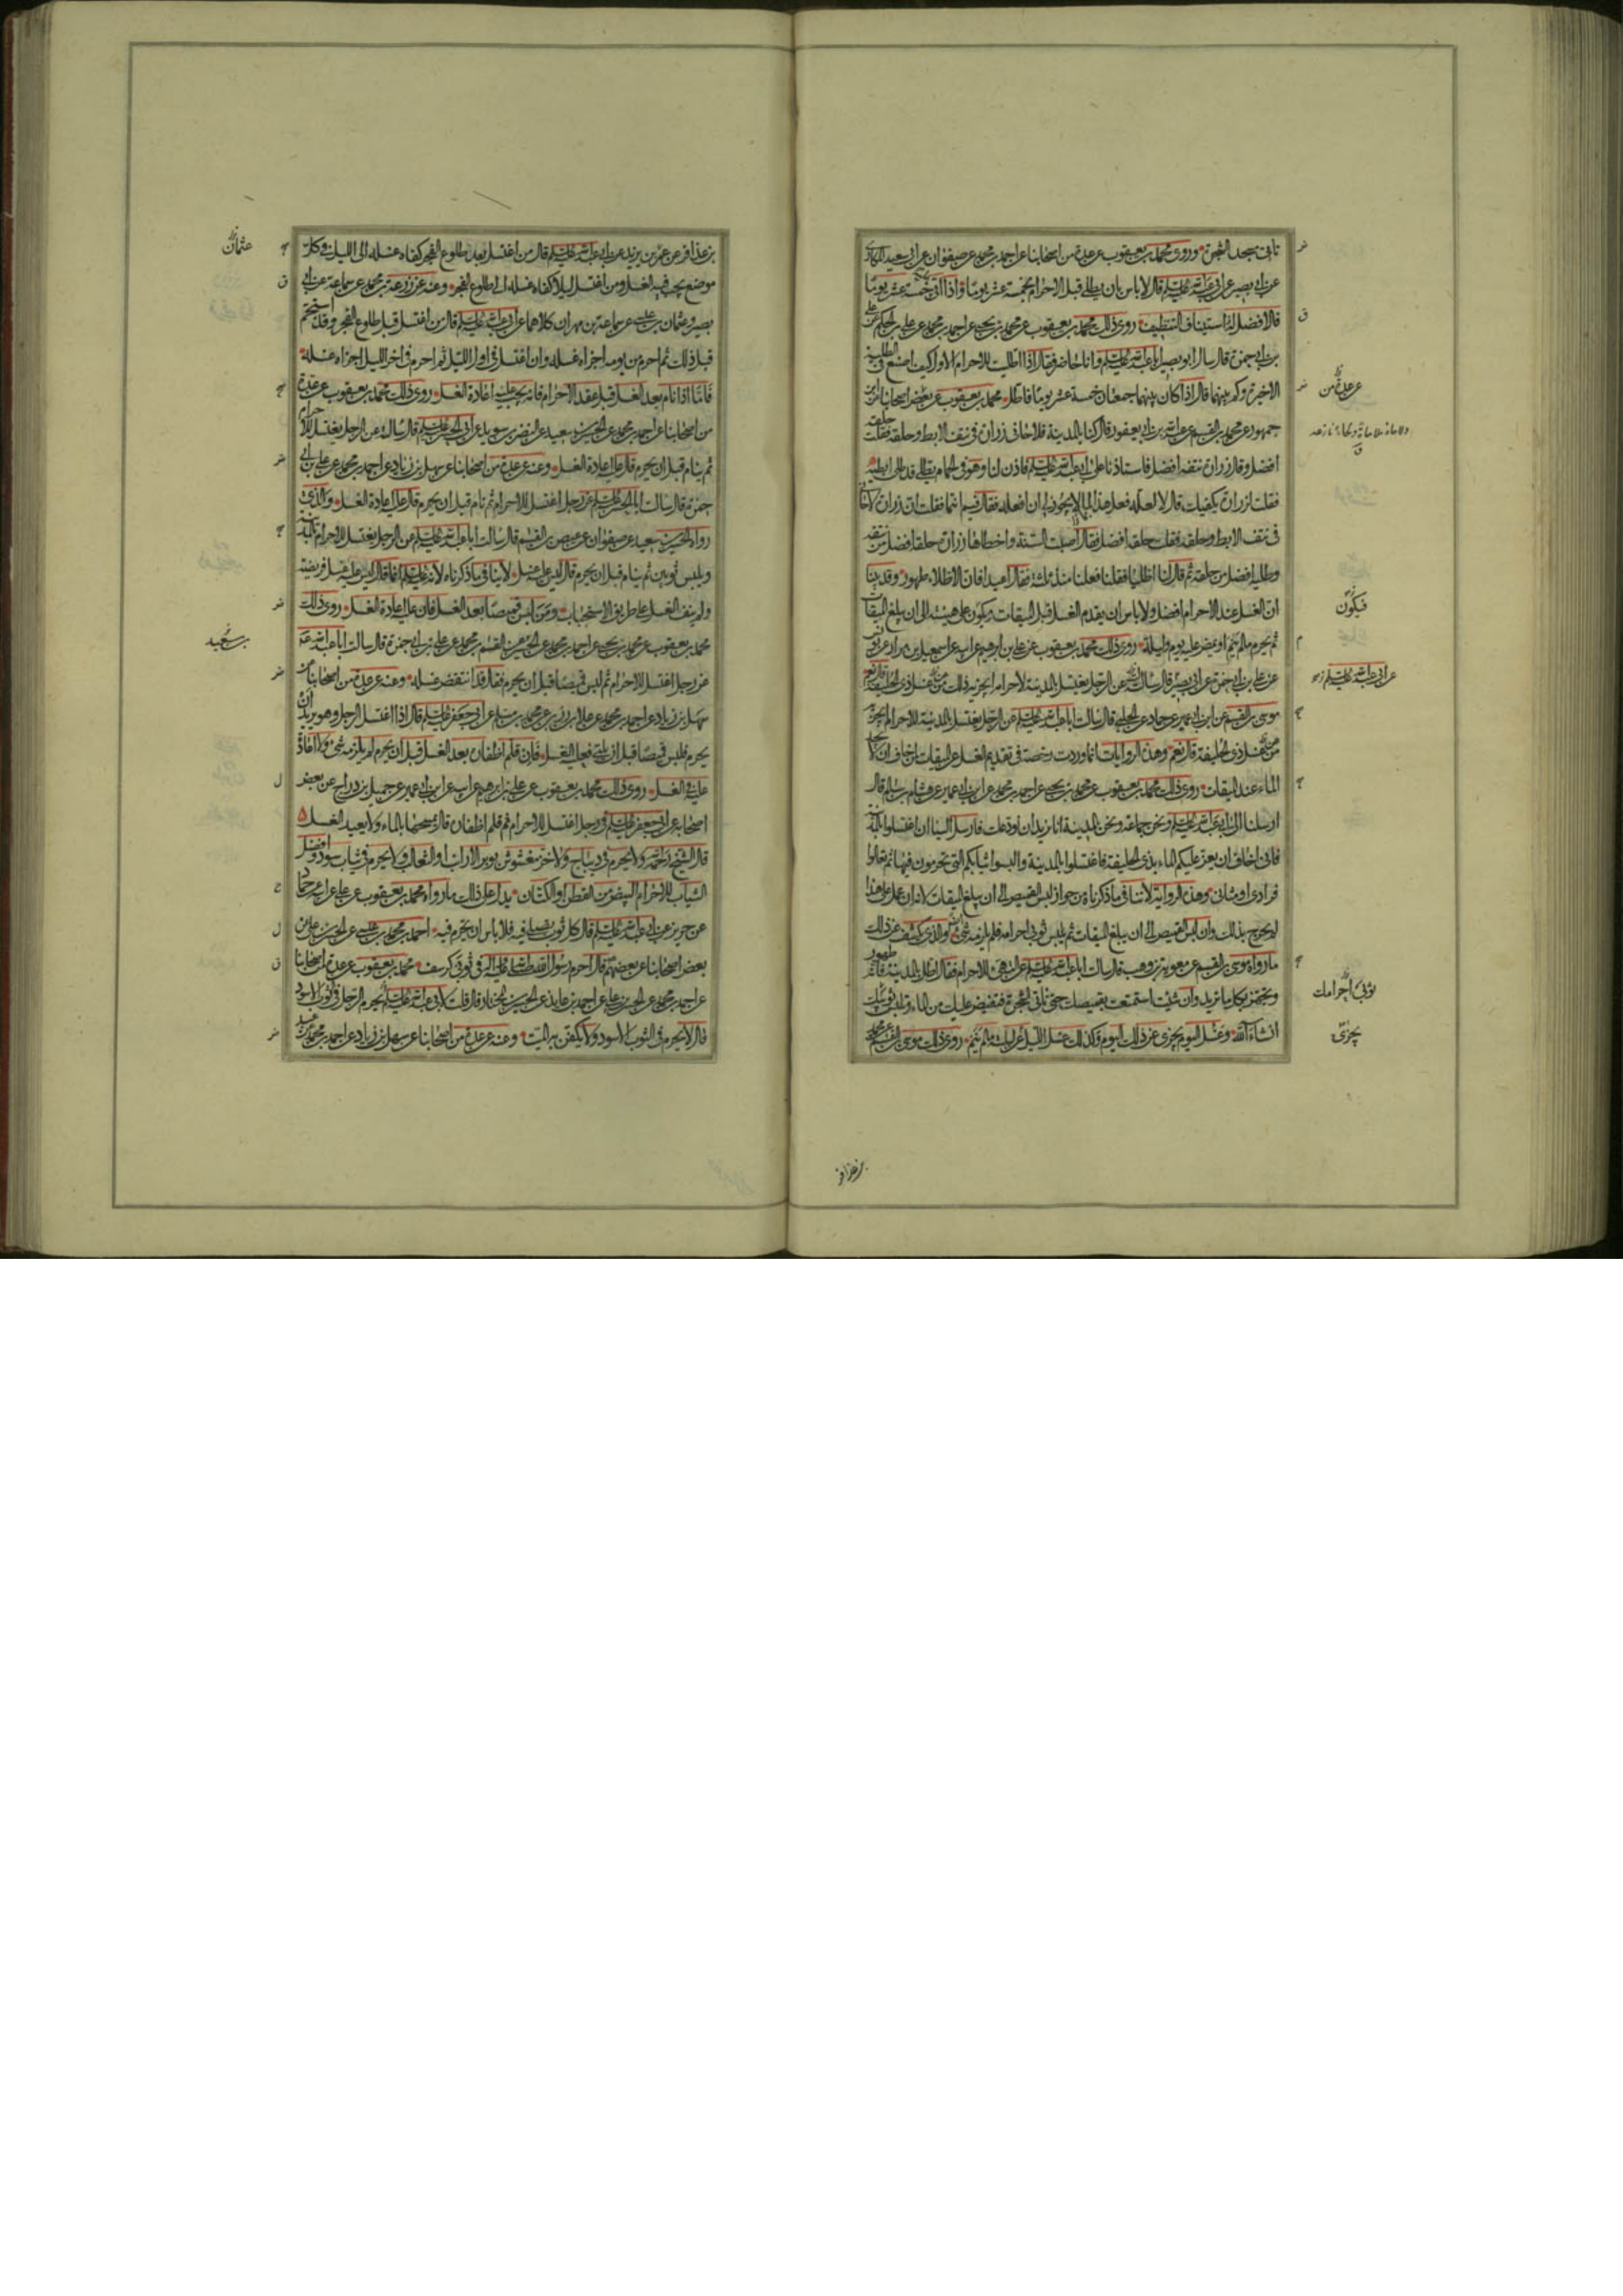 تأتي مسجد الشجرة وروى محمد بن يعقوب عن عدة من اصحابنا عن احمد بن محمد عن صفوان عن ابي سعيد المكاري
عن ابي بصير عن ابي عبد الله عليه السلام قال لا باس بان يطلي قبل الاحرام بخمسة عشر يوما واذا اتى خمسة عشر يوما
فالافضل له استيناف التنظيف روى ذلك محمد بن يعقوب عن محمد بن يحيى عن احمد بن محمد عن علي بن الحكم عن علي
بن ابي حمزة قال سال ابو بصير ابا عبد الله عليه السلام وانا حاضر فقال اذا اطليت للاحرام الاول كيف اصنع في الطلية
الاخيرة وكم بينهما قال اذا كان بينهما جمعتان خمسة عشر يوما فاطل محمد بن يعقوب عن بعض اصحابنا عن ابن
جمهور عن محمد بن القسم عن عبد الله بن ابي يعفور قال كنا بالمدينة فلاحاني زرارة في نتف الابط وحلقه فقلت حلقه
افضل وقال زرارة نتفه افضل فاستاذنا على ابي عبد الله عليه السلام فاذن لنا وهو في الحمام يطلي قد طلى ابطيه
فقلت لزرارة يكفيك قال لا لعله فعل هذا لما لا يجوز لي ان افعله فقال فيم انتما فقلت ان زرارة لاحاني
في نتف الابط وحلقه فقلت حلقه افضل فقال اصبت السنة واخطأها زرارة حلقه افضل من نتفه
وطليه افضل من حلقه ثم قال لنا اطليا فقلنا فعلنا منذ ثلثة فقال اعيدا فان الاطلاء طهور وقد بينا
ان الغسل عند الاحرام افضل ولا باس ان يقدم الغسل قبل الميقات ويكون على هيئته الى ان يبلغ الميقات
ثم يحرم ما لم ينم او يمض عليه يوم وليلة روى ذلك محمد بن يعقوب عن علي بن ابرهيم عن ابيه عن اسمعيل بن مرار عن يونس
عن علي بن ابي حمزة عن ابي بصير قال سالته عن الرجل يغتسل بالمدينة لاحرامه ايجزيه ذلك من غسل ذي الحليفة قال نعم
موسى بن القسم عن ابن ابي عمير عن حماد عن الحلبي قال سالت ابا عبد الله عليه السلام عن الرجل يغتسل بالمدينة للاحرام ايجزيه
عن غسل ذي الحليفة قال نعم وهذه الروايات انما وردت رخصة في تقديم الغسل عن الميقات لمن خاف ان لا يجد
الماء عند الميقات روى ذلك محمد بن يعقوب عن محمد بن يحيى عن احمد بن محمد عن ابن ابي عمير عن هشام بن سالم قال
ارسلنا الى ابي عبد الله عليه السلام ونحن جماعة ونحن بالمدينة انا نريد ان نودعك فارسل الينا ان اغتسلوا بالمدينة
فاني اخاف ان يعز عليكم الماء بذي الحليفة فاغتسلوا بالمدينة والبسوا ثيابكم التي تحرمون فيها ثم تعالوا
فرادى او مثاني وهذه الرواية لا تنافي ما ذكرناه من جواز لبس القميص الى ان يبلغ الميقات لانه ان عمل على هذا
لم يحرج بذلك وان لبس القميص الى ان يبلغ الميقات ثم يلبس ثوبي احرامه فلم يلزمه شئ والذي يكشف عن ذلك
ما رواه موسى بن القسم عن معوية بن وهب قال سالت ابا عبد الله عليه السلام عن التهيئ للاحرام فقال اطل بالمدينة فانه طهور
وتجهز بكل ما تريد وان شئت استمتعت بقميصك حتى تاتي الشجرة فتفيض عليك من الماء وتلبس ثوبيك
انشاء الله وغسل اليوم يجزي عن ذلك اليوم وكذلك غسل الليل عن ليلته ما لم ينم روى ذلك موسى بن القسم عن محمد
عن عدة من
فيكون
عن ابي عبد الله عليه السلام
ثوبي احرامك
يجزي
بن عذافر
بن عذافر عن عمر بن يزيد عن ابي عبد الله عليه السلام قال من اغتسل بعد طلوع الفجر كفاه غسله الى الليل في كل
موضع يجب فيه الغسل ومن اغتسل ليلا كفاه غسله الى طلوع الفجر وعنه عن زرعة بن محمد عن سماعة عن ابي
بصير وعثمان بن عيسى عن سماعة بن مهران كلاهما عن ابي عبد الله عليه السلام قال من اغتسل قبل طلوع الفجر وقد استحم
قبل ذلك ثم احرم من يومه اجزاه غسله وان اغتسل في اول الليل ثم احرم في اخر الليل اجزاه غسله
فاما اذا نام بعد الغسل قبل عقد الاحرام فانه يجب عليه اعادة الغسل روى ذلك محمد بن يعقوب عن عدة
من اصحابنا عن احمد بن محمد عن الحسين بن سعيد عن النضر بن سويد عن ابي الحسن عليه السلام قال سالته عن الرجل يغتسل للاحرام
ثم ينام قبل ان يحرم قال عليه اعادة الغسل وعنه عن عدة من اصحابنا عن سهل بن زياد عن احمد بن محمد عن علي بن ابي
حمزة قال سالت ابا الحسن عليه السلام عن رجل اغتسل للاحرام ثم نام قبل ان يحرم قال عليه اعادة الغسل والذي
رواه الحسين بن سعيد عن صفوان عن عيص بن القسم قال سالت ابا عبد الله عليه السلام عن الرجل يغتسل للاحرام بالمدينة
ويلبس ثوبين ثم ينام قبل ان يحرم قال ليس عليه غسل لا ينافي ما ذكرناه لانه عليه السلام انما قال ليس عليه غسل فريضة
ولم ينف الغسل على طريق الاستحباب ومن لبس قميصا بعد الغسل فان عليه اعادة الغسل روى ذلك
محمد بن يعقوب عن محمد بن يحيى عن احمد بن محمد عن الحسين عن القسم بن محمد عن علي بن ابي حمزة قال سالت ابا عبد الله
عن رجل اغتسل للاحرام ثم لبس قميصا قبل ان يحرم فقال قد انتقض غسله وعنه عن عدة من اصحابنا عن
سهل بن زياد عن احمد بن محمد عن علا بن رزين عن محمد بن مسلم عن ابي جعفر عليه السلام قال اذا اغتسل الرجل وهو يريد ان
يحرم فلبس قميصا قبل ان يلبي فعليه الغسل فان قلم اظفاره بعد الغسل قبل ان يحرم لم يلزمه شئ ولا اعادة
عليه في الغسل روى ذلك محمد بن يعقوب عن علي بن ابرهيم عن ابيه عن ابن ابي عمير عن جميل بن دراج عن بعض
اصحابه عن ابي جعفر عليه السلام في رجل اغتسل للاحرام ثم قلم اظفاره قال يمسحها بالماء ولا يعيد الغسل
قال الشيخ رحمه الله ولا يحرم في ديباج ولا خز مغشوش بوبر الارانب او الثعالب ولا يحرم في ثياب سود وافضل
الثياب للاحرام البيض من القطن او الكتان يدل على ذلك ما رواه محمد بن يعقوب عن علي عن ابيه عن حماد
عن حريز عن ابي عبد الله عليه السلام قال كل ثوب تصلي فيه فلا باس ان تحرم فيه احمد بن محمد بن عيسى عن الحسن بن علي عن
بعض اصحابنا عن بعضهم قال احرم رسول الله صلى الله عليه واله في ثوبي كرسف محمد بن يعقوب عن عدة من اصحابنا
عن احمد بن محمد عن الحسن بن علي عن احمد بن عايذ عن الحسين بن المختار قال قلت لابي عبد الله عليه السلام يحرم الرجل في الثوب الاسود
قال لا يحرم في الثوب الاسود ولا يكفن به الميت وعنه عن عدة من اصحابنا عن سهل بن زياد عن احمد بن محمد عن
عثمان
بن سعيد